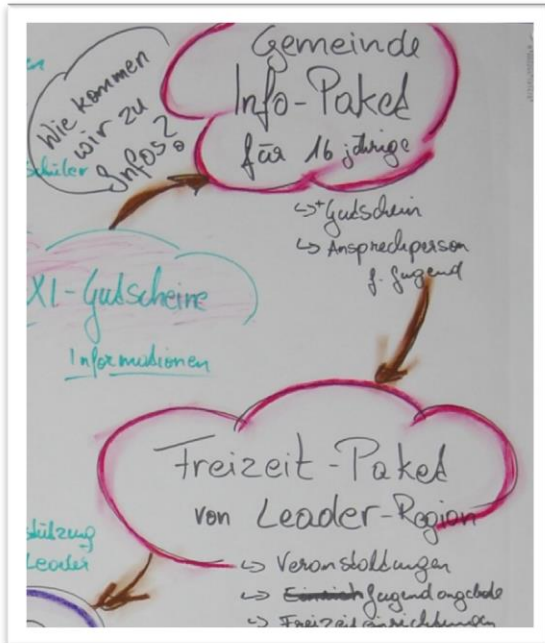 Wie kommen
wir zu
Infos?
Gemeinde
Info-Paket
für 16 jährige
↳ + Gutschein
↳ Ansprechperson
f. Jugend
schüler
XI-Gutscheine
Informationen
Freizeit-Paket
von Leader-Region
↳ Veranstaltungen
↳ Jugendangebote
↳ Freizeiteinrichtungen
stützung
Leader